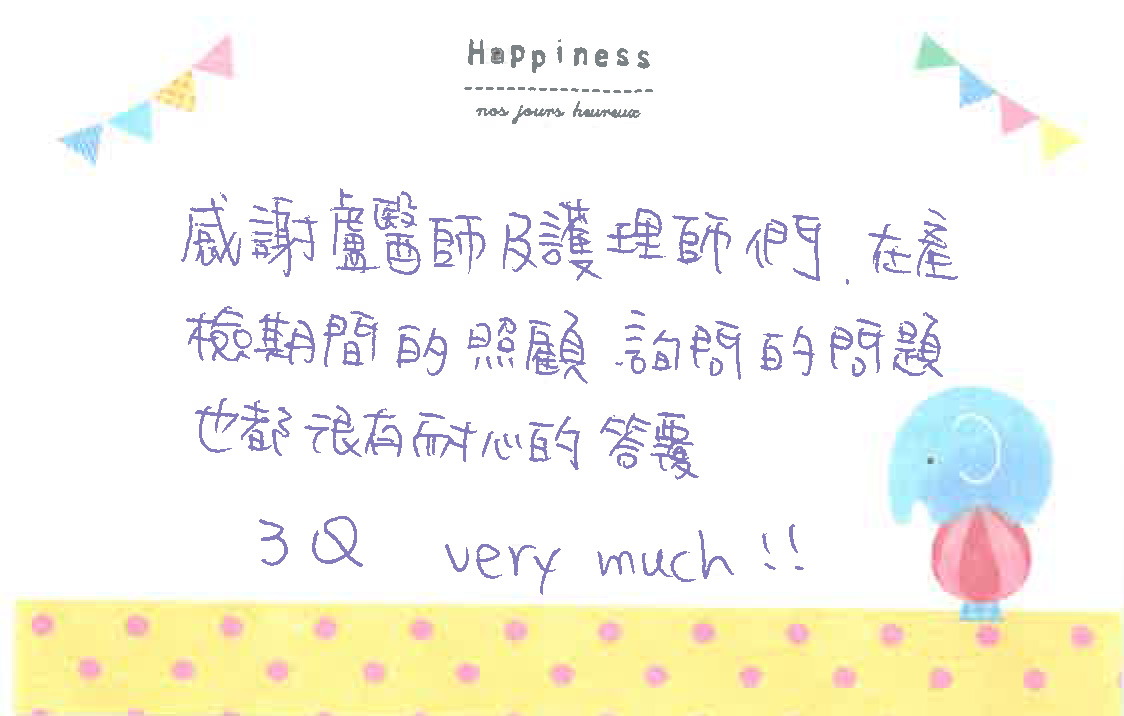 Happiness
nos jours heureux
感謝盧醫師及護理師們.在產
檢期間的照顧 詢問的問題
也都很有耐心的答覆
3Q very much!!